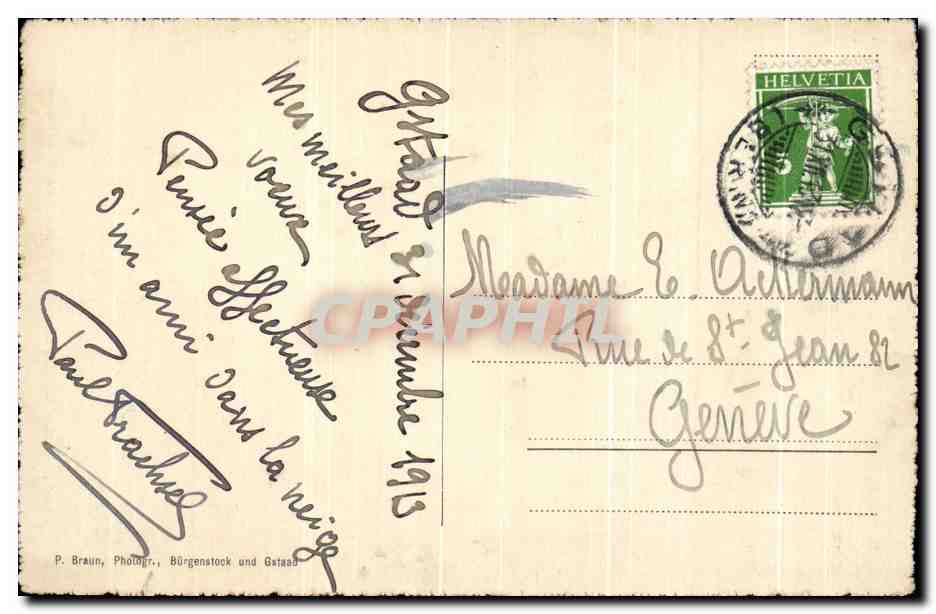 Gstaad 31 décembre 1913
Mes meilleurs
voeux
Pensée affectueuse
d'un ami dans la neige
Paul Trachsel
HELVETIA
Madame E. Ackermann
Rue de St-Jean 82
Genève
CPAPHIL
P. Braun, Photogr., Bürgenstock und Gstaad